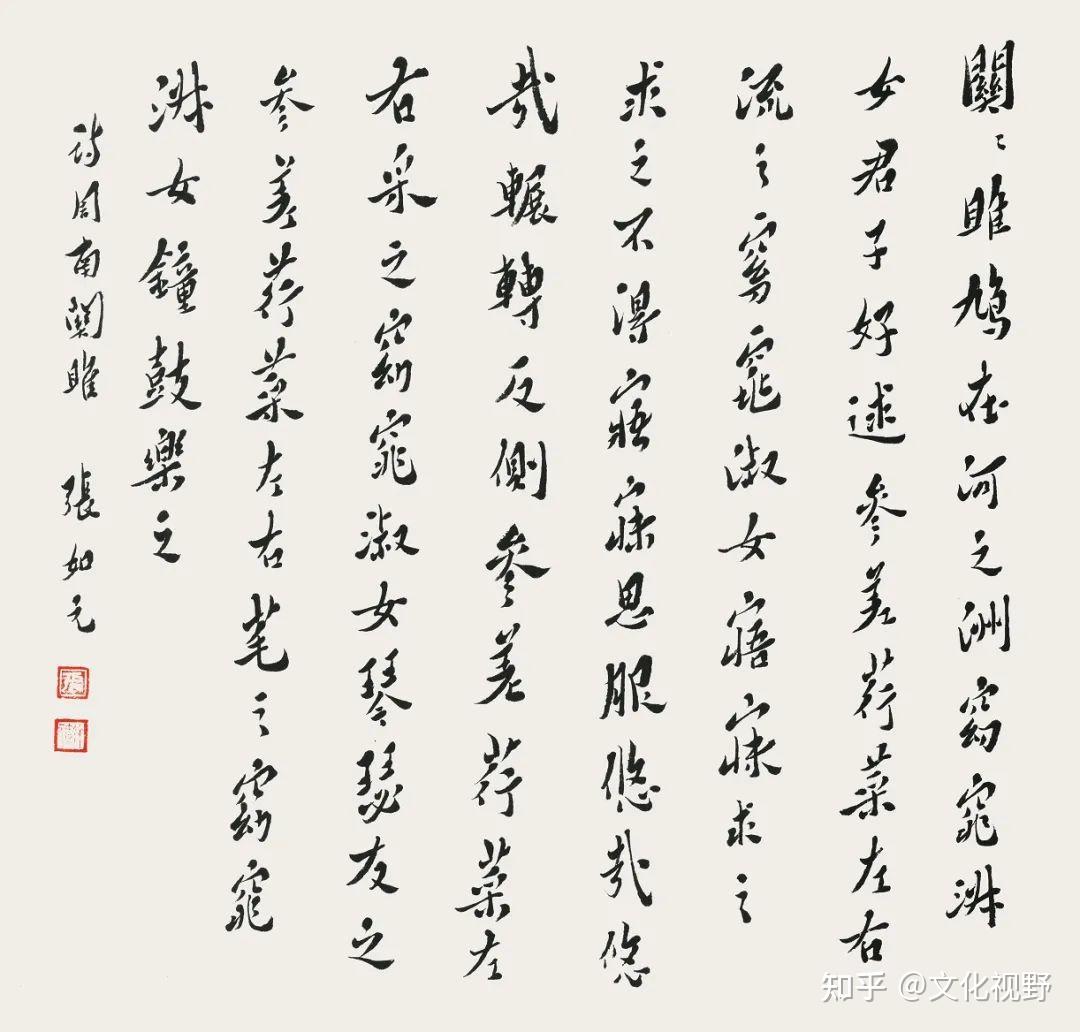 關〻雎鳩在河之洲窈窕淋
女君子好逑參差荇菜左右
流之窈窕淑女寤寐求之
求之不得寤寐思服悠哉悠
哉輾轉反側參差荇菜左
右采之窈窕淑女琴瑟友之
參差荇菜左右芼之窈窕
淋女鐘鼓樂之
詩周南關雎 張如元
知乎 @文化视野